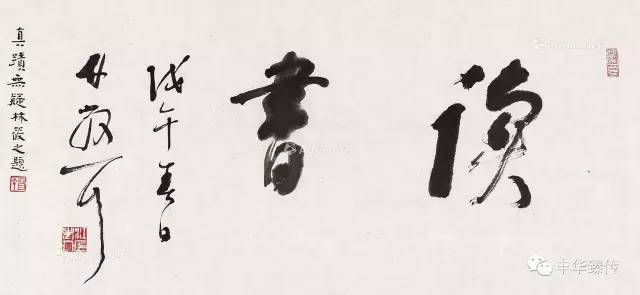 讀書
戊午春日
林散耳
真蹟無疑林筱之題
丰华臻传